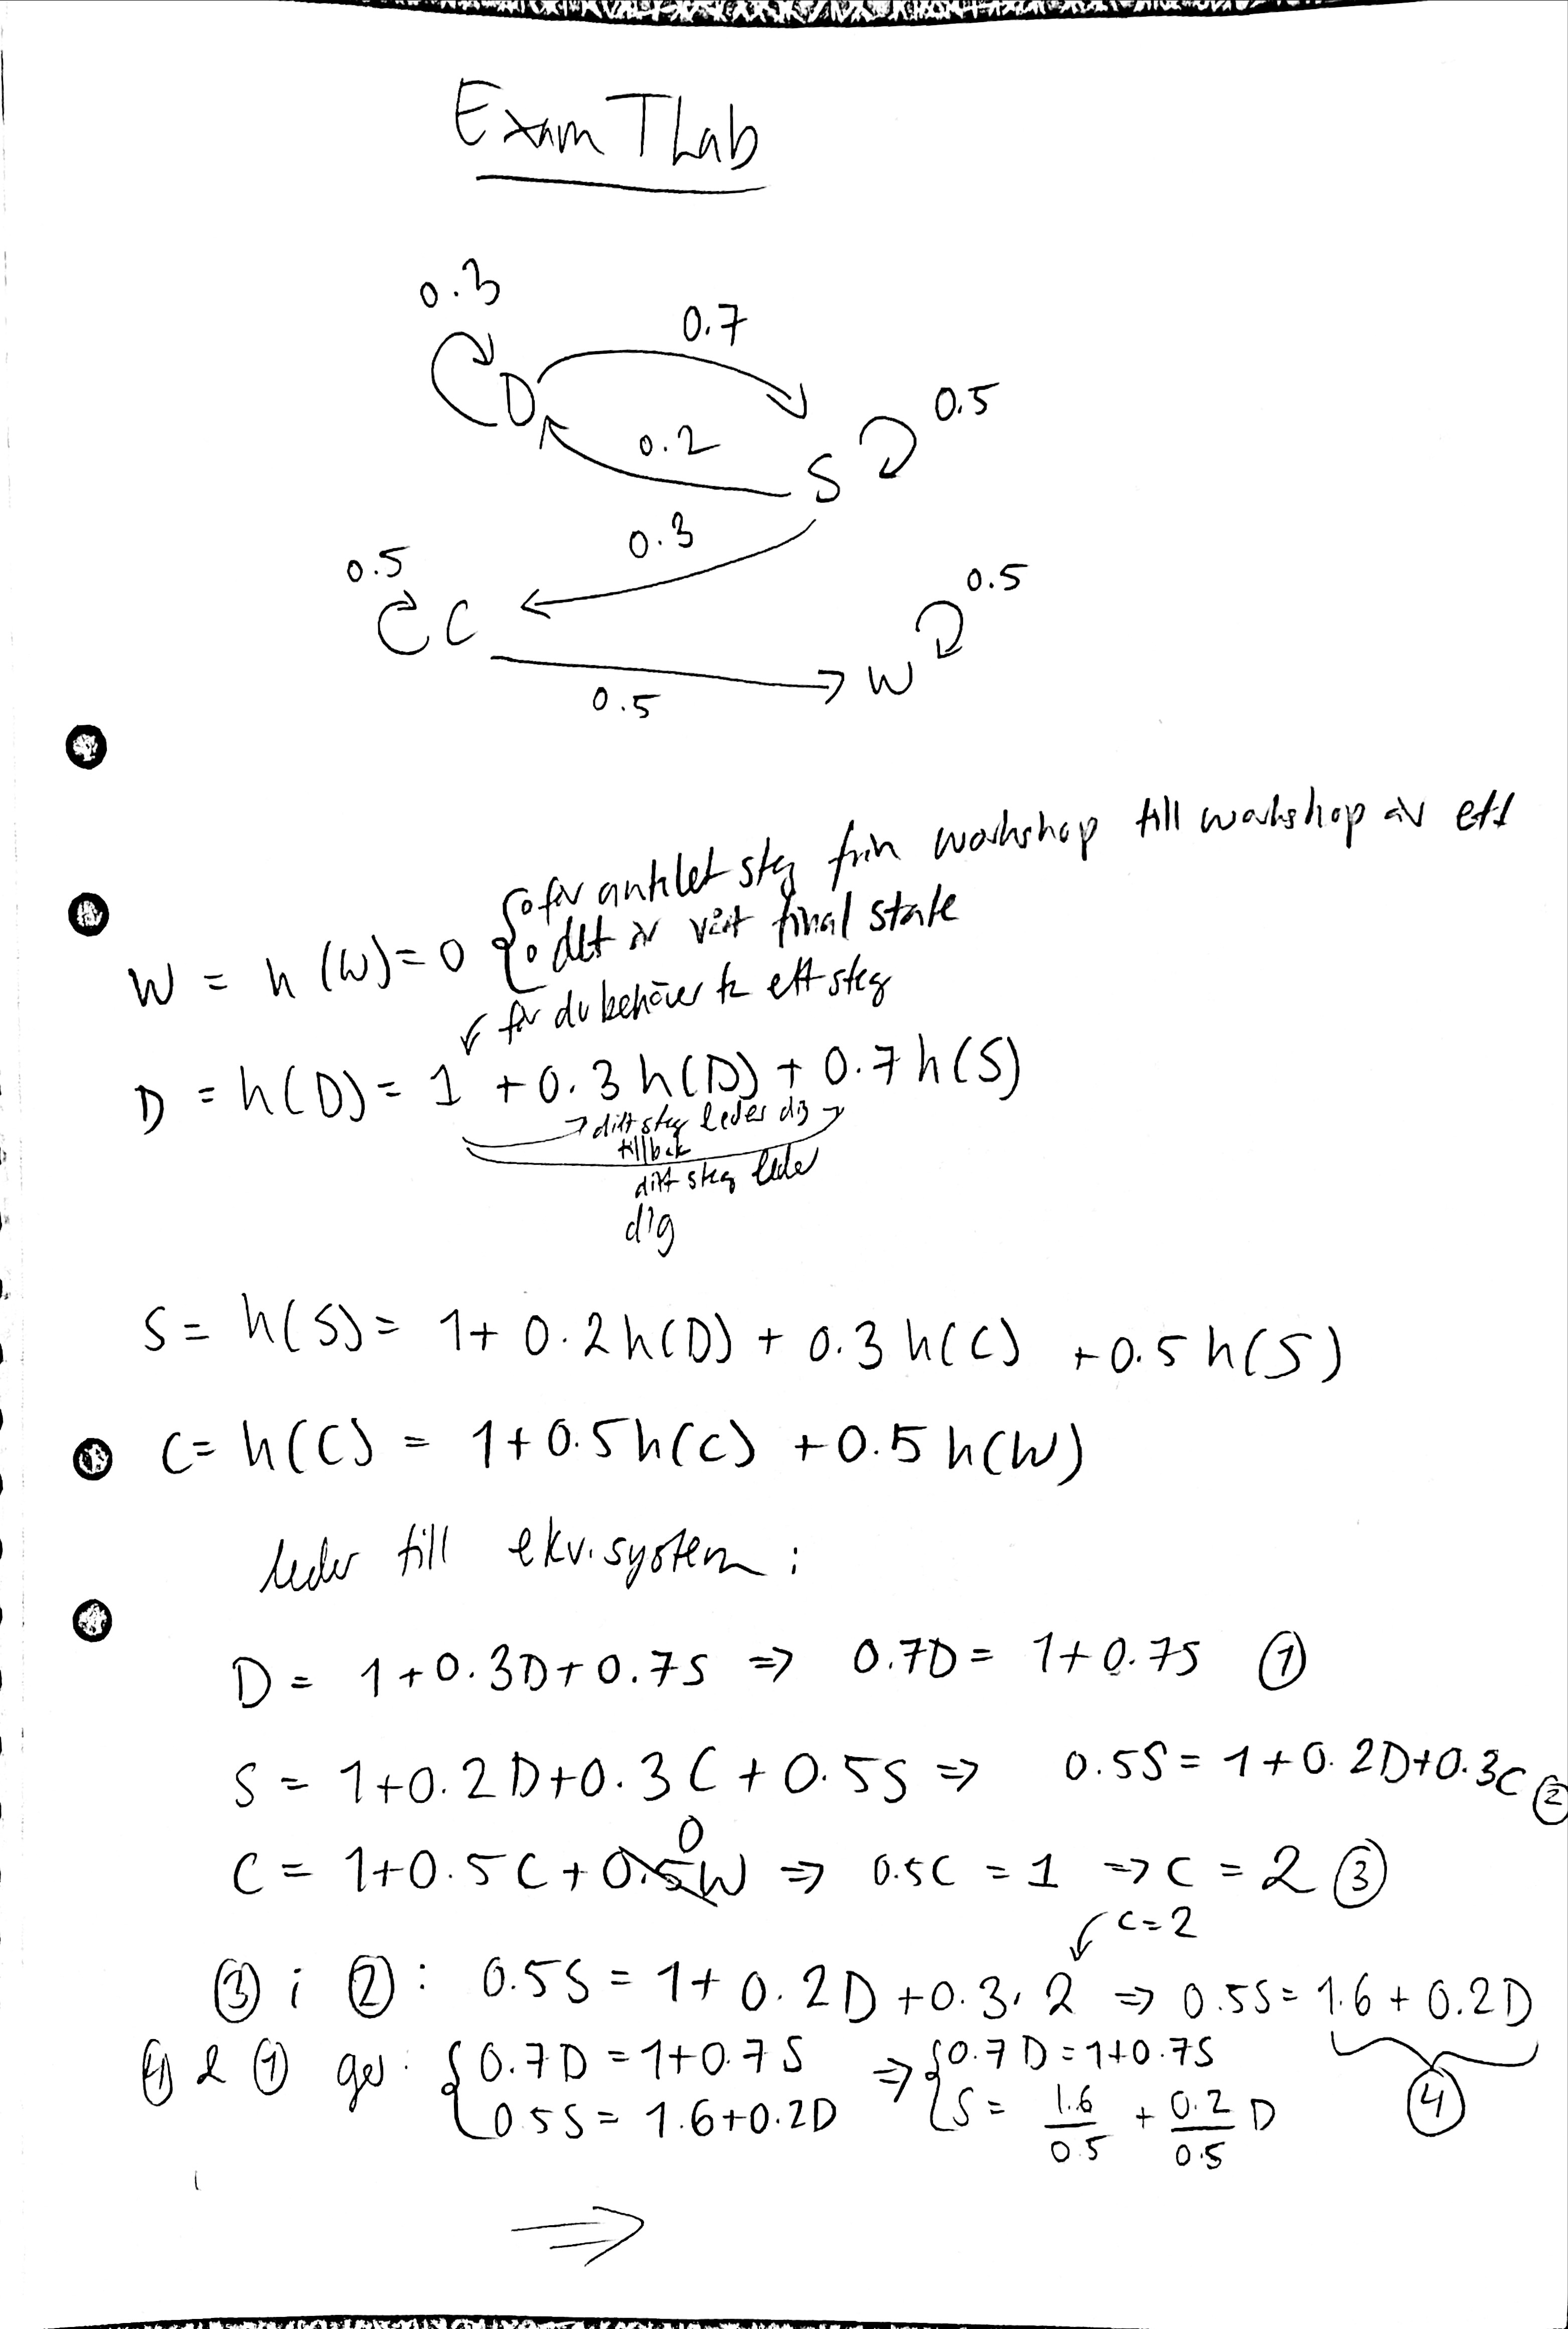 Exam TLab
0.3
0.7
D
0.5
0.2
S
0.3
0.5
C
0.5
W
0.5
W = h(W)=0 { o för antalet steg från workshop till workshop är ett
o det är vårt final state
för du behöver ta ett steg
D = h(D)= 1 +0.3h(D)+0.7h(S)
ditt steg leder dig
tillbak
ditt steg leder
dig
S= h(S)= 1+ 0.2h(D) + 0.3h(C) +0.5h(S)
C= h(C) = 1+0.5h(C) +0.5h(W)
leder till ekv.system:
D = 1+0.3D+0.7S => 0.7D= 1+0.7S ①
S = 1+0.2D+0.3C+0.5S => 0.5S=1+0.2D+0.3C ②
0
C = 1+0.5C+0.5W => 0.5C = 1 => C = 2 ③
C=2
③ i ②: 0.5S = 1+ 0.2D +0.3·2 => 0.5S= 1.6+0.2D
④ & ① ger: {0.7D=1+0.7S => {0.7D=1+0.7S
④
0.5S= 1.6+0.2D S= 1.6/0.5 + 0.2/0.5 D
=>